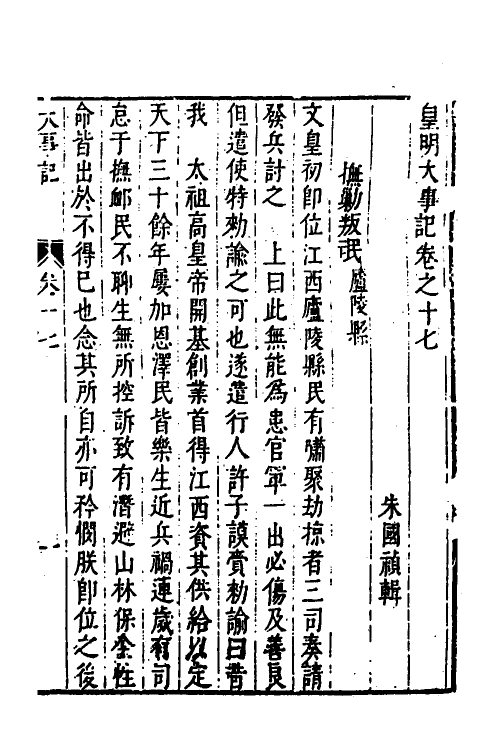 皇明大事記卷之十七
朱國禎輯
撫勦叛民 廬陵縣
文皇初即位江西廬陵縣民有嘯聚劫掠者三司奏請
發兵討之 上曰此無能爲患官軍一出必傷及善良
但遣使特勑諭之可也遂遣行人許子謨賫勑諭曰昔
我 太祖高皇帝開基創業首得江西資其供給以定
天下三十餘年屢加恩澤民皆樂生近兵禍連歲有司
怠于撫邮民不聊生無所控訴致有潛避山林保全性
命皆出於不得已也念其所自亦可矜憫朕即位之後
大事記 卷十七 一